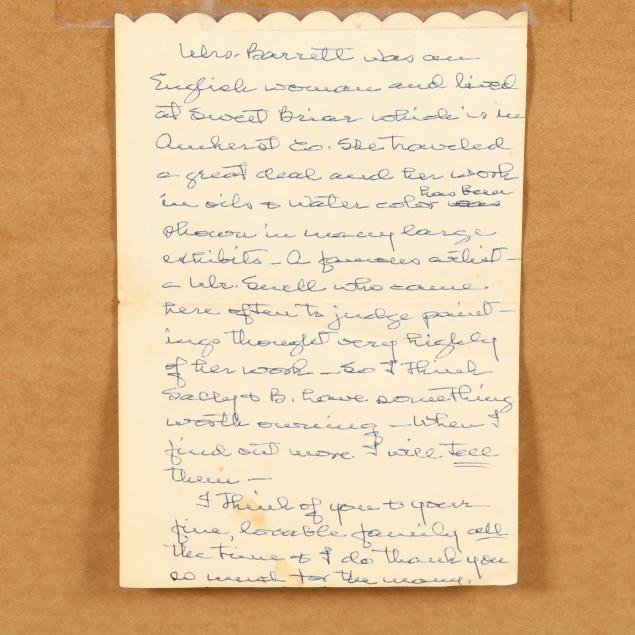 Mrs. Barrett was an
English woman and lived
at Sweet Briar which is in
Amherst Co. She traveled
a great deal and her work
in oils & water color has been was
shown in many large
exhibits – A famous artist –
a Mr. Snell who came
here often to judge paint-
ings thought very highly
of her work – So I think
Sally & B. have something
worth owning – When I
find out more I will tell
them –
I think of you & your
fine, lovable family all
the time & I do thank you
so much for the many,